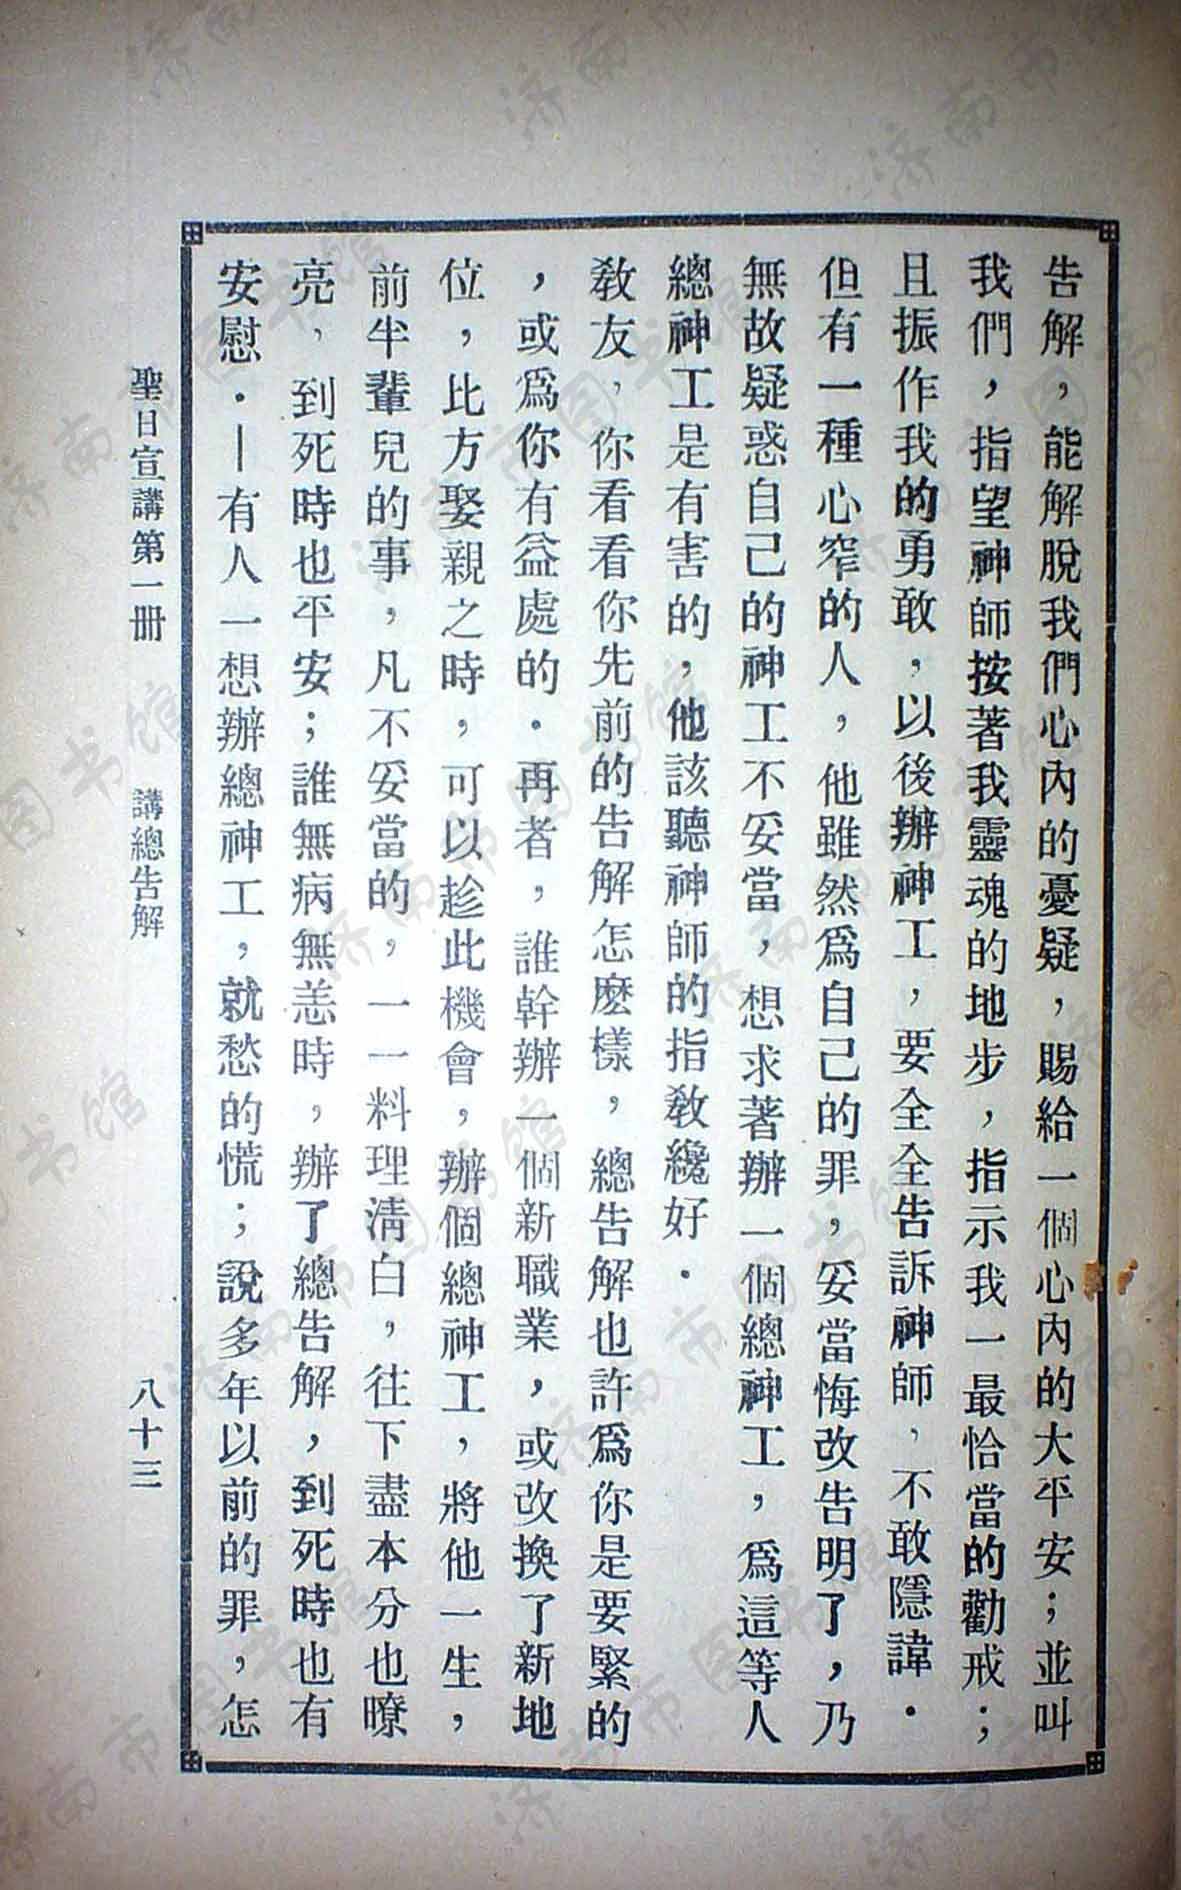 告解，能解脫我們心內的憂疑，賜給一個心內的大平安；並叫
我們，指望神師按著我靈魂的地步，指示我一最恰當的勸戒；
且振作我的勇敢，以後辦神工，要全全告訴神師，不敢隱諱．
但有一種心窄的人，他雖然爲自己的罪，妥當悔改告明了，乃
無故疑惑自己的神工不妥當，想求著辦一個總神工，爲這等人
總神工是有害的，他該聽神師的指敎纔好．
敎友，你看看你先前的告解怎麽樣，總告解也許爲你是要緊的
，或爲你有益處的．再者，誰幹辦一個新職業，或改換了新地
位，比方娶親之時，可以趁此機會，辦個總神工，將他一生，
前半輩兒的事，凡不妥當的，一一料理淸白，往下盡本分也暸
亮，到死時也平安；誰無病無恙時，辦了總告解，到死時也有
安慰．—有人一想辦總神工，就愁的慌；說多年以前的罪，怎
聖日宣講第一册　講總告解　八十三
济南市图书馆